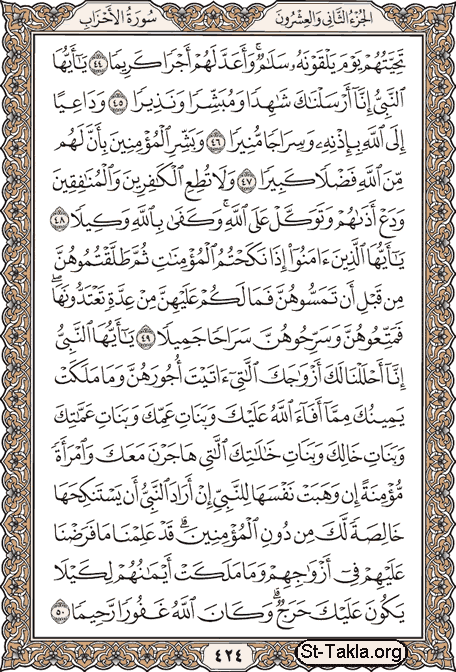 الجزء الثاني والعشرون سورة الأحزاب
تَحِيَّتُهُمْ يَوْمَ يَلْقَوْنَهُۥ سَلَٰمٌۚ وَأَعَدَّ لَهُمْ أَجْرًا كَرِيمًا ٤٤ يَٰٓأَيُّهَا
ٱلنَّبِيُّ إِنَّآ أَرْسَلْنَٰكَ شَٰهِدًا وَمُبَشِّرًا وَنَذِيرًا ٤٥ وَدَاعِيًا
إِلَى ٱللَّهِ بِإِذْنِهِۦ وَسِرَاجًا مُّنِيرًا ٤٦ وَبَشِّرِ ٱلْمُؤْمِنِينَ بِأَنَّ لَهُم
مِّنَ ٱللَّهِ فَضْلًا كَبِيرًا ٤٧ وَلَا تُطِعِ ٱلْكَٰفِرِينَ وَٱلْمُنَٰفِقِينَ
وَدَعْ أَذَىٰهُمْ وَتَوَكَّلْ عَلَى ٱللَّهِۚ وَكَفَىٰ بِٱللَّهِ وَكِيلًا ٤٨
يَٰٓأَيُّهَا ٱلَّذِينَ ءَامَنُوٓا۟ إِذَا نَكَحْتُمُ ٱلْمُؤْمِنَٰتِ ثُمَّ طَلَّقْتُمُوهُنَّ
مِن قَبْلِ أَن تَمَسُّوهُنَّ فَمَا لَكُمْ عَلَيْهِنَّ مِنْ عِدَّةٍ تَعْتَدُّونَهَاۖ
فَمَتِّعُوهُنَّ وَسَرِّحُوهُنَّ سَرَاحًا جَمِيلًا ٤٩ يَٰٓأَيُّهَا ٱلنَّبِيُّ
إِنَّآ أَحْلَلْنَا لَكَ أَزْوَٰجَكَ ٱلَّٰتِيٓ ءَاتَيْتَ أُجُورَهُنَّ وَمَا مَلَكَتْ
يَمِينُكَ مِمَّآ أَفَآءَ ٱللَّهُ عَلَيْكَ وَبَنَاتِ عَمِّكَ وَبَنَاتِ عَمَّٰتِكَ
وَبَنَاتِ خَالِكَ وَبَنَاتِ خَٰلَٰتِكَ ٱلَّٰتِي هَاجَرْنَ مَعَكَ وَٱمْرَأَةً
مُّؤْمِنَةً إِن وَهَبَتْ نَفْسَهَا لِلنَّبِيِّ إِنْ أَرَادَ ٱلنَّبِيُّ أَن يَسْتَنكِحَهَا
خَالِصَةً لَّكَ مِن دُونِ ٱلْمُؤْمِنِينَۗ قَدْ عَلِمْنَا مَا فَرَضْنَا
عَلَيْهِمْ فِيٓ أَزْوَٰجِهِمْ وَمَا مَلَكَتْ أَيْمَٰنُهُمْ لِكَيْلَا
يَكُونَ عَلَيْكَ حَرَجٌۗ وَكَانَ ٱللَّهُ غَفُورًا رَّحِيمًا ٥٠
٤٢٤
St-Takla.org